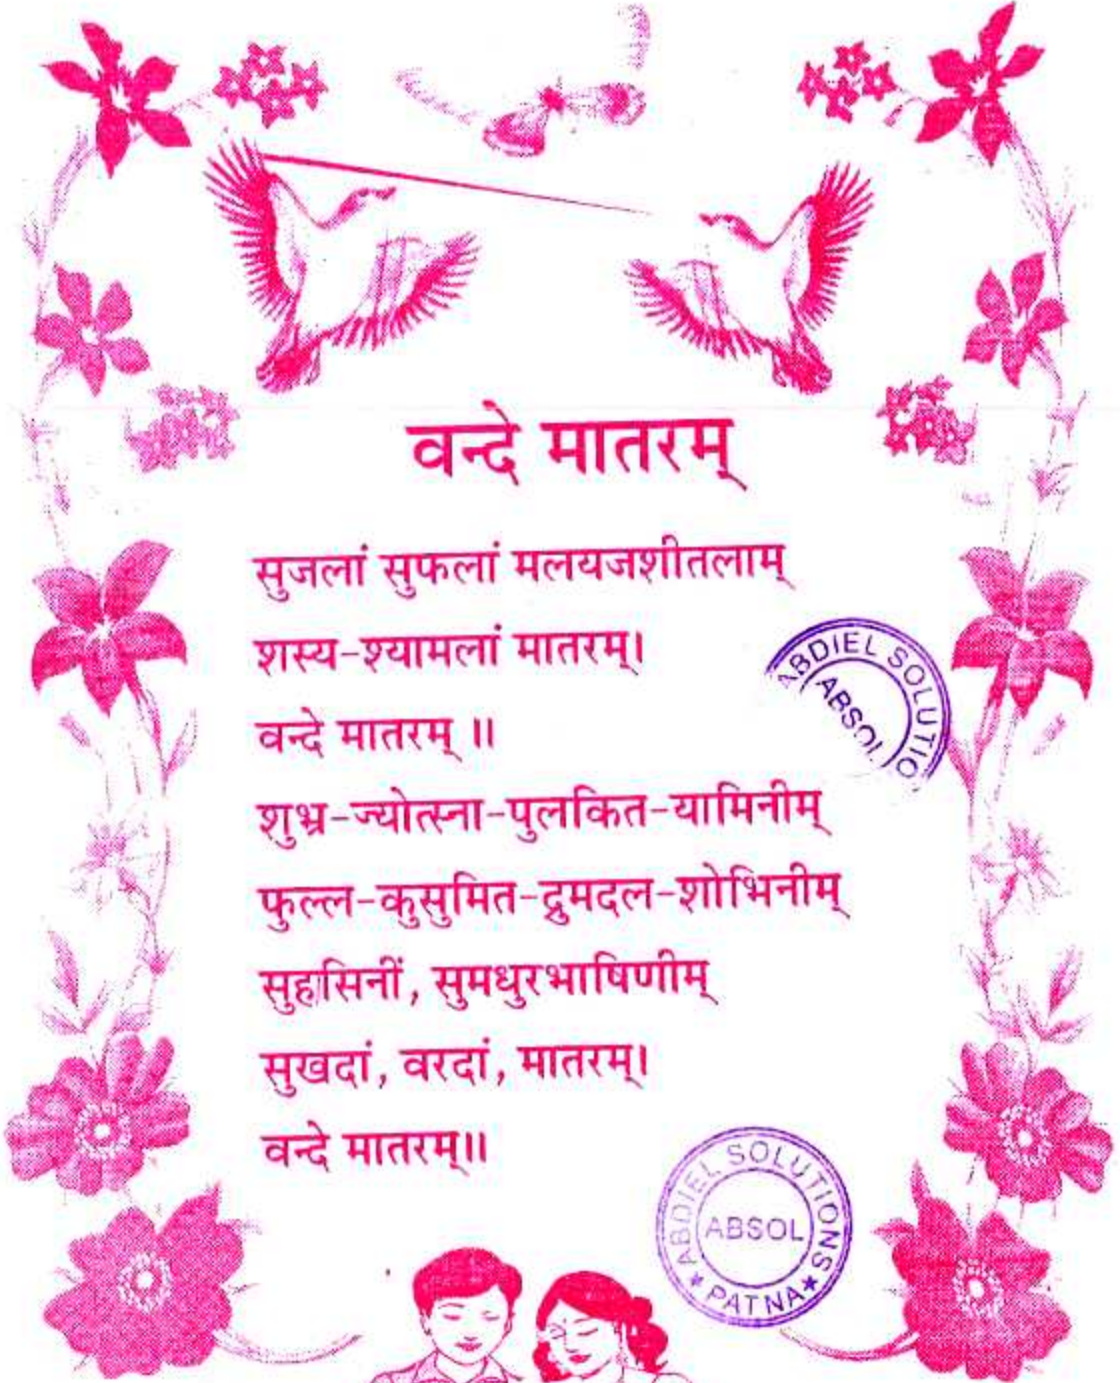 वन्दे मातरम्
सुजलां सुफलां मलयजशीतलाम्
शस्य-श्यामलां मातरम्।
वन्दे मातरम् ॥
शुभ्र-ज्योत्स्ना-पुलकित-यामिनीम्
फुल्ल-कुसुमित-द्रुमदल-शोभिनीम्
सुहासिनीं, सुमधुरभाषिणीम्
सुखदां, वरदां, मातरम्।
वन्दे मातरम्॥
ABDIEL SOLUTIO
ABSOL
ABDIEL SOLUTIONS
ABSOL
★ PATNA ★